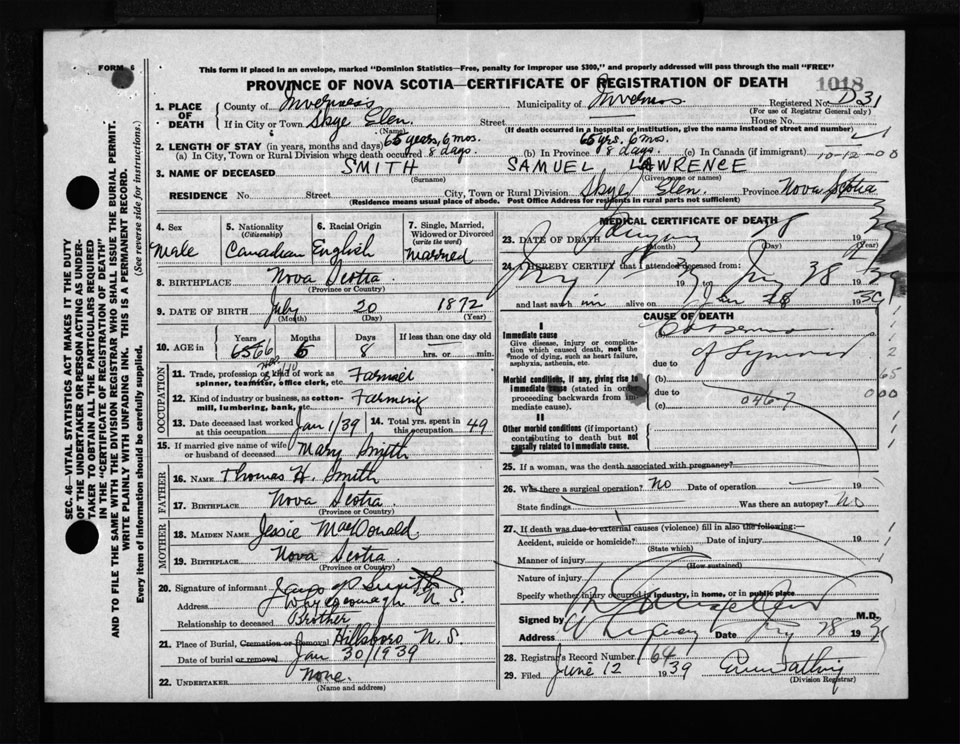 FORM 6
This form if placed in an envelope, marked "Dominion Statistics—Free, penalty for improper use $300," and properly addressed will pass through the mail "FREE"
PROVINCE OF NOVA SCOTIA—CERTIFICATE OF REGISTRATION OF DEATH
1018
1. PLACE OF DEATH
County of Inverness
Municipality of Inverness
Registered No. D31
(For use of Registrar General only)
If in City or Town Skye Glen
(Name)
Street
House No.
(If death occurred in a hospital or institution, give the name instead of street and number)
2. LENGTH OF STAY (in years, months and days)
(a) In City, Town or Rural Division where death occurred 65 years, 6 mos. 8 days.
(b) In Province 65 yrs. 6 mos. 8 days.
(c) In Canada (if immigrant)
10-12-00
3. NAME OF DECEASED SMITH SAMUEL LAWRENCE
(Surname) (Given name or names)
RESIDENCE No. Street City, Town or Rural Division Skye Glen. Province Nova Scotia
(Residence means usual place of abode. Post Office Address for residents in rural parts not sufficient)
4. Sex
Male
5. Nationality
(Citizenship)
Canadian
6. Racial Origin
English
7. Single, Married, Widowed or Divorced
(write the word)
Married
8. BIRTHPLACE Nova Scotia
(Province or Country)
9. DATE OF BIRTH July 20 1872
(Month) (Day) (Year)
10. AGE in
Years Months Days If less than one day old
65 66 6 8 hrs. or min.
OCCUPATION
11. Trade, profession or kind of work as spinner, teamster, office clerk, etc. Farmer
12. Kind of industry or business, as cotton-mill, lumbering, bank, etc. Farming
13. Date deceased last worked at this occupation Jan 1/39
14. Total yrs. spent in this occupation 49
15. If married give name of wife or husband of deceased Mary Smith
FATHER
16. NAME Thomas H. Smith
17. BIRTHPLACE Nova Scotia
(Province or Country)
MOTHER
18. MAIDEN NAME Jessie MacDonald
19. BIRTHPLACE Nova Scotia
(Province or Country)
20. Signature of informant Smith
Address Whycocomagh N. S.
Relationship to deceased Brother
21. Place of Burial, Cremation or Removal Hillsboro N. S.
Date of burial or removal Jan 30/1939
22. UNDERTAKER None.
(Name and address)
MEDICAL CERTIFICATE OF DEATH
23. DATE OF DEATH 28 19 39
(Month) (Day) (Year)
24. I HEREBY CERTIFY that I attended deceased from:
19 to 28 19 39
and last saw him alive on Jan 28 19 39
CAUSE OF DEATH
I
Immediate cause
Give disease, injury or complication which caused death, not the mode of dying, such as heart failure, asphyxia, asthenia, etc.
(a)
of
due to
Morbid conditions, if any, giving rise to immediate cause (stated in order proceeding backwards from immediate cause).
(b)
due to
(c) 0467
II
Other morbid conditions (if important) contributing to death but not causally related to immediate cause.
25. If a woman, was the death associated with pregnancy?
26. Was there a surgical operation? No Date of operation 19
State findings Was there an autopsy? No
27. If death was due to external causes (violence) fill in also the following:—
Accident, suicide or homicide? Date of injury 19
(State which)
Manner of injury
(How sustained)
Nature of injury
Specify whether injury occurred in industry, in home, or in public place
Signed by M.D.
Address Date 28 19 39
28. Registrar's Record Number 64
29. Filed June 12 1939
(Division Registrar)
SEC. 46—VITAL STATISTICS ACT MAKES IT THE DUTY
OF THE UNDERTAKER OR PERSON ACTING AS UNDER-
TAKER TO OBTAIN ALL THE PARTICULARS REQUIRED
IN THE "CERTIFICATE OF REGISTRATION OF DEATH"
AND TO FILE THE SAME WITH THE DIVISION REGISTRAR WHO SHALL ISSUE THE BURIAL PERMIT.
WRITE PLAINLY WITH UNFADING INK. THIS IS A PERMANENT RECORD.
Every item of information should be carefully supplied. (See reverse side for instructions.)